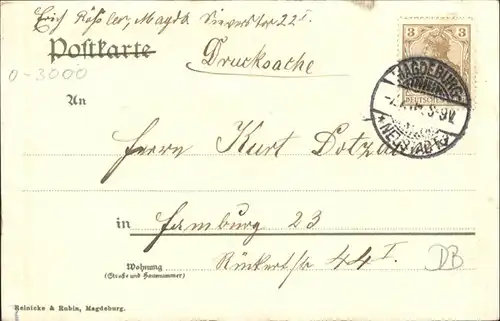 Erich Rößler, Magdb Sieverstor 22 I.
Postkarte
Drucksache
3
DEUTSCHES
MAGDEBURG
* NEUSTADT
0-3000
An
Herrn Kurt Dotzal
in Hamburg 23
Rückertstr 44 I.
Wohnung
(Straße und Hausnummer)
DB
Reinicke & Rubin, Magdeburg.